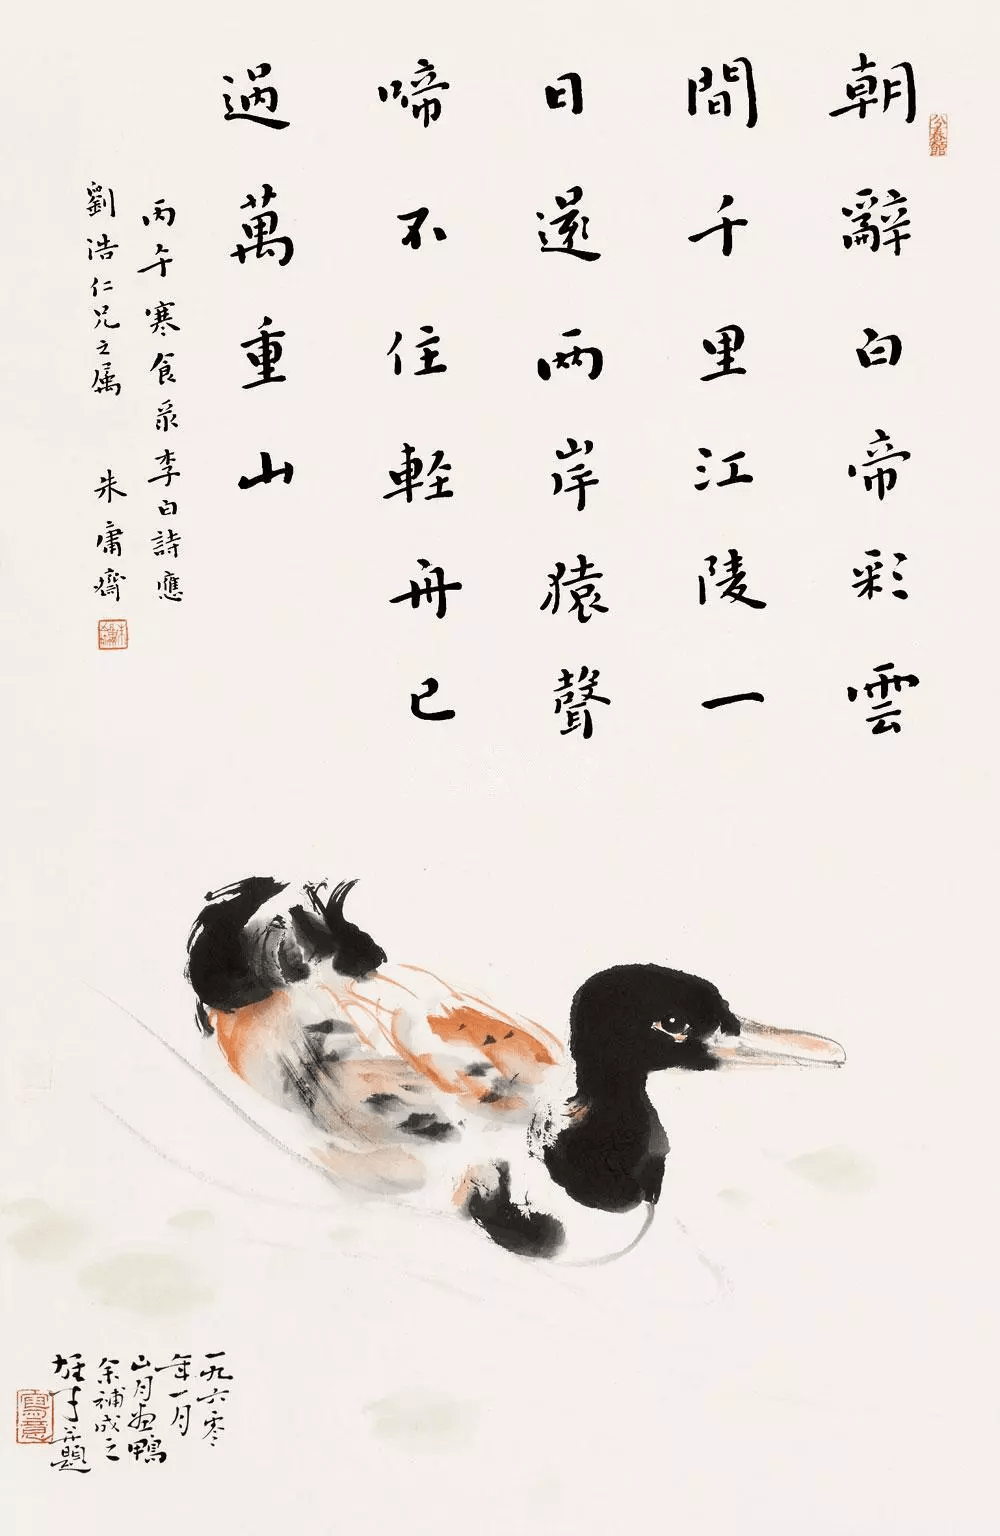 朝辭白帝彩雲
間千里江陵一
日還兩岸猿聲
啼不住輕舟已
過萬重山
丙午寒食录李白詩應
劉浩仁兄之属
朱庸齋
分春館
一九六零
年一月
山月畫鴨
余補成之
雄才并題
寫意